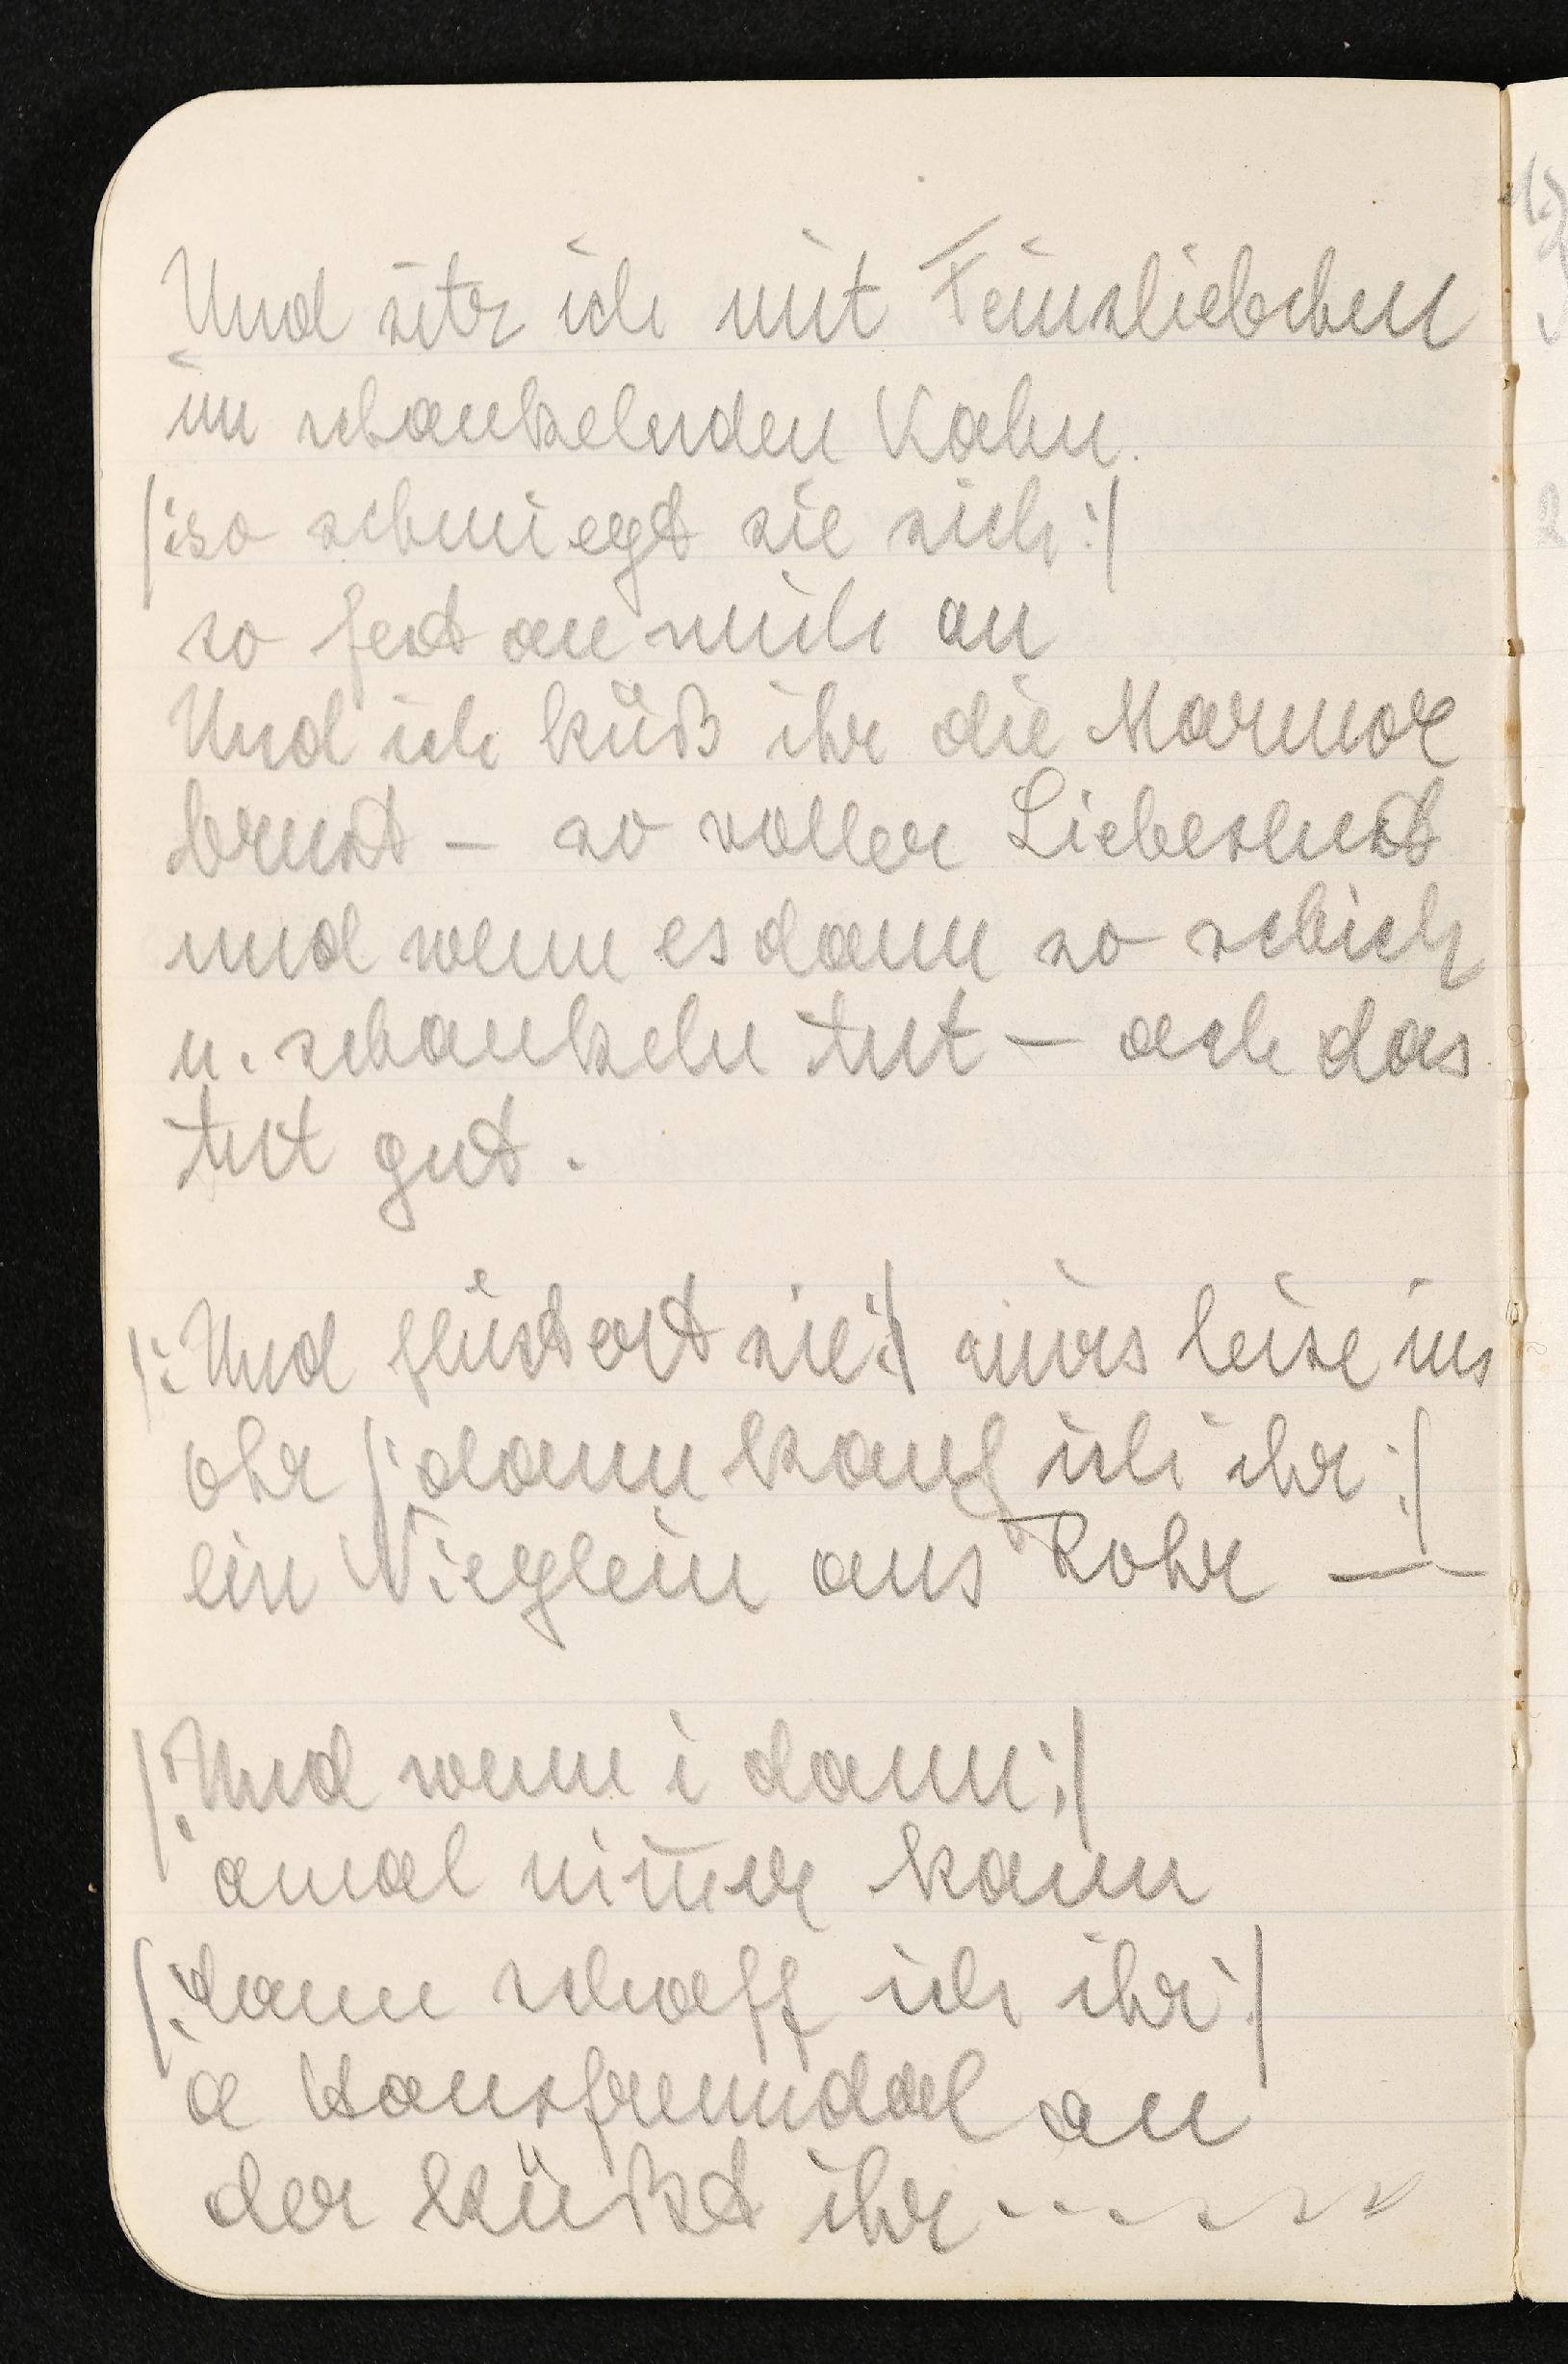 Und sitz ich mit Feinsliebchen
im schaukelnden Kahn.
|: so schmiegt sie sich :|
so fest an mich an
Und ich küß ihr die Marmor
brust – so voller Liebeslust
und wenn es dann so schich
u. schaukeln tut – ach das
tut gut.
|: Und flüstert sie :| mirs leise ins
ohr |: dann kauf ich ihr :|
ein Wieglein aus Rohr —
|: Und wenn i dann :|
amal nim̅er kann
|: dann schaff ich ihr :|
a Hausfreundal an
der küßt ihr - - - - - -